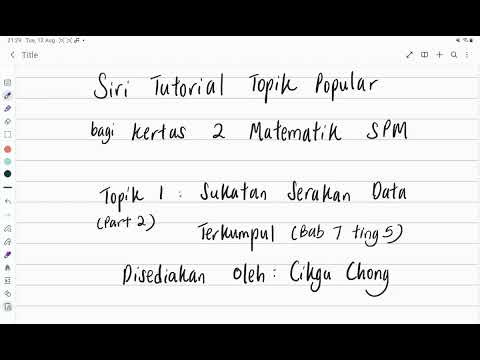 21:29 Tue, 13 Aug
Title
Siri Tutorial Topik Popular
bagi kertas 2 Matematik SPM
Topik 1 : Sukatan Serakan Data
(Part 2)
Terkumpul (Bab 7 ting 5)
Disediakan oleh : Cikgu Chong